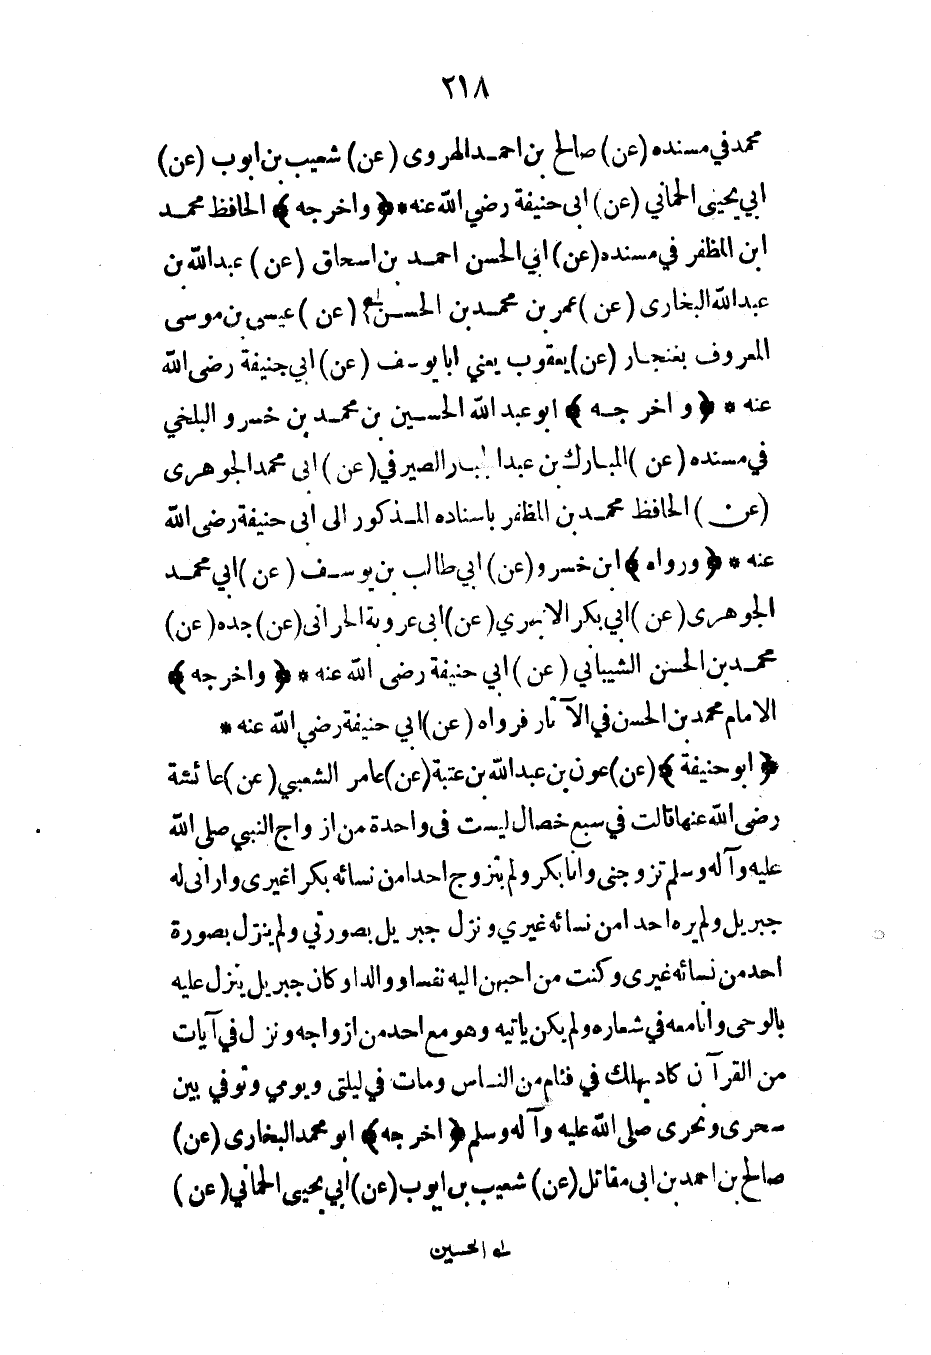 ٢١٨
محمد في مسنده (عن) صالح بن احمد الهروى (عن) شعيب بن ايوب (عن)
ابي يحيى الحماني (عن) ابى حنيفة رضي الله عنه * ﴿ واخرجه ﴾ الحافظ محمد
ابن المظفر في مسنده (عن) ابي الحسن احمد بن اسحاق (عن) عبدالله بن
عبدالله البخارى (عن) عمر بن محمد بن الحسن (عن) عيسى بن موسى
المعروف بغنجار (عن) يعقوب يعني ابا يوسف (عن) ابي حنيفة رضى الله
عنه * ﴿ واخرجه ﴾ ابو عبدالله الحسين بن محمد بن خسرو البلخي
في مسنده (عن) المبارك بن عبدالجبار الصيرفي (عن) ابى محمد الجوهرى
(عن) الحافظ محمد بن المظفر باسناده المذكور الى ابى حنيفة رضى الله
عنه * ﴿ ورواه ﴾ ابن خسرو (عن) ابي طالب بن يوسف (عن) ابي محمد
الجوهرى (عن) ابي بكر الابهري (عن) ابى عروبة الحرانى (عن) جده (عن)
محمد بن الحسن الشيباني (عن) ابي حنيفة رضى الله عنه * ﴿ واخرجه ﴾
الامام محمد بن الحسن في الآثار فرواه (عن) ابي حنيفة رضي الله عنه *
﴿ ابو حنيفة ﴾ (عن) عون بن عبدالله بن عتبة (عن) عامر الشعبي (عن) عائشة
رضى الله عنها قالت في سبع خصال ليست فى واحدة من ازواج النبي صلى الله
عليه وآله وسلم تزوجنى وانا بكر ولم يتزوج احدا من نسائه بكرا غيرى وارانى له
جبريل ولم يره احدا من نسائه غيري ونزل جبريل بصورتي ولم ينزل بصورة
احد من نسائه غيرى وكنت من احبهن اليه نفسا ووالدا وكان جبريل ينزل عليه
بالوحى وانا معه في شعاره ولم يكن ياتيه وهو مع احد من ازواجه ونزل في آيات
من القرآن كاد يهلك في فئام من الناس ومات في ليلتى ويومي وتوفي بين
سحرى ونحرى صلى الله عليه وآله وسلم ﴿ اخرجه ﴾ ابو محمد البخارى (عن)
صالح بن احمد بن ابى مقاتل (عن) شعيب بن ايوب (عن) ابي يحيى الحماني (عن)
الحسين